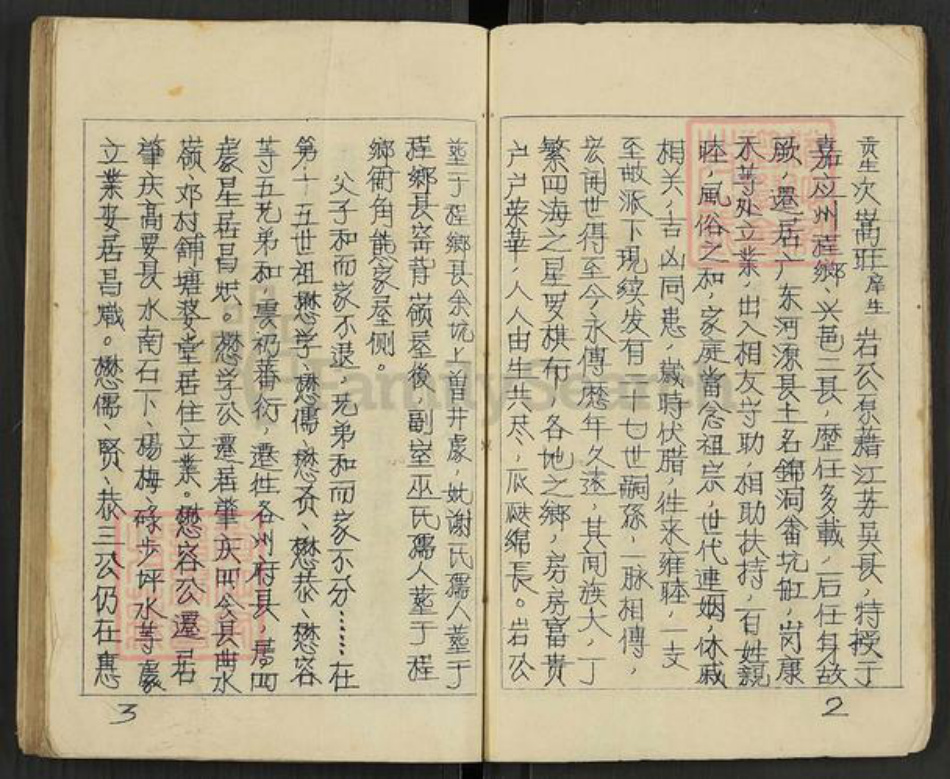 贡生次嵩旺庠生 岩公原藉江苏吳县，特授于
嘉应州程鄉、兴邑二县，歴任多載，后任身故
厥，遷居广东河源县土名錦洞畲坑缸，岗康
禾等处立業，出入相友守助，相助扶持，百姓親
睦，風俗之和，家庭當念祖宗，世代連姻，休戚
相关，吉凶同患，歲時伏腊，往来雍睦，一支
至啟派下現续发有二十七世嗣孫，一脉相傳，
宏開世得至今永傳歴年久遠，其间族大，丁
繁四海之星罗棋布，各地之鄉，房房富貴
户户荣華，人人由生共尽，瓜瓞綿長。岩公
塟于程鄉县余坑上曽井處，妣謝氏孺人塟于
程鄉县窑背嶺屋後，副室巫氏孺人塟于程
鄉衙角熊家屋侧。
父子和而家不退，兄弟和而家不分……在
第十五世祖懋学、懋儒、懋贤、懋恭、懋容
等五兄弟和，雲礽蕃衍，遷往各州府县，居四
處星居昌炽。懋学公遷居肇庆四会县曲水
嶺、邓村鋪塘婺堂居住立業。懋容公遷居
肇庆高要县水南石下、楊梅、祿步坪水等處
立業安居昌熾。懋儒、賢、恭三公仍在惠
3
2
FamilySearch